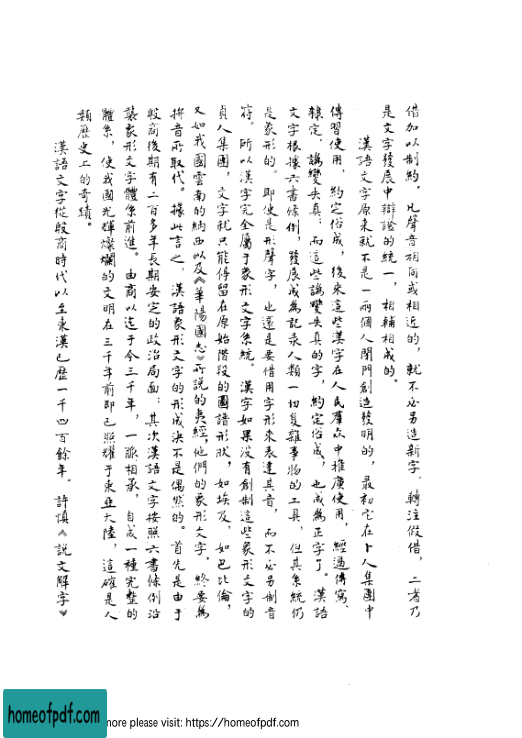 借加以制約。凡聲音相同或相近的，就不必另造新字。轉注假借，二者乃
是文字發展中辯證的統一，相輔相成的。
漢語文字原来就不是一兩個人閉門創造發明的，最初它在卜人集團中
傳習使用，約定俗成，後来這些漢字在人民羣众中推廣使用，經過傳寫、
隸定，譌變失真；而這些譌變失真的字，約定俗成，也成為正字了。漢語
文字根據六書條例，發展成為記录人類一切复雜事物的工具，但其系統仍
是象形的。即使是形聲字，也還是要借用字形来表達其音，而不必另制音
符。所以漢字完全屬于象形文字系統。漢字如果没有創制這些象形文字的
貞人集團，文字就只能停留在原始階段的圖譜形狀，如埃及，如巴比倫，
又如我國雲南的納西以及《華陽國志》所說的夷經，他們的象形文字，終要為
拼音所取代。據此言之，漢語象形文字的形成決不是偶然的。首先是由于
殷商後期有二百多年長期安定的政治局面；其次漢語文字按照六書條例沿
襲象形文字體系前進。由商以迄于今三千年，一脈相承，自成一種完整的
體系，使我國光輝燦爛的文明在三千年前即已照耀于東亞大陸，這確是人
類歷史上的奇蹟。
漢語文字從殷商時代以至東漢已歷一千四百餘年。許慎《說文解字》
homeofpdf.com
more please visit: https://homeofpdf.com